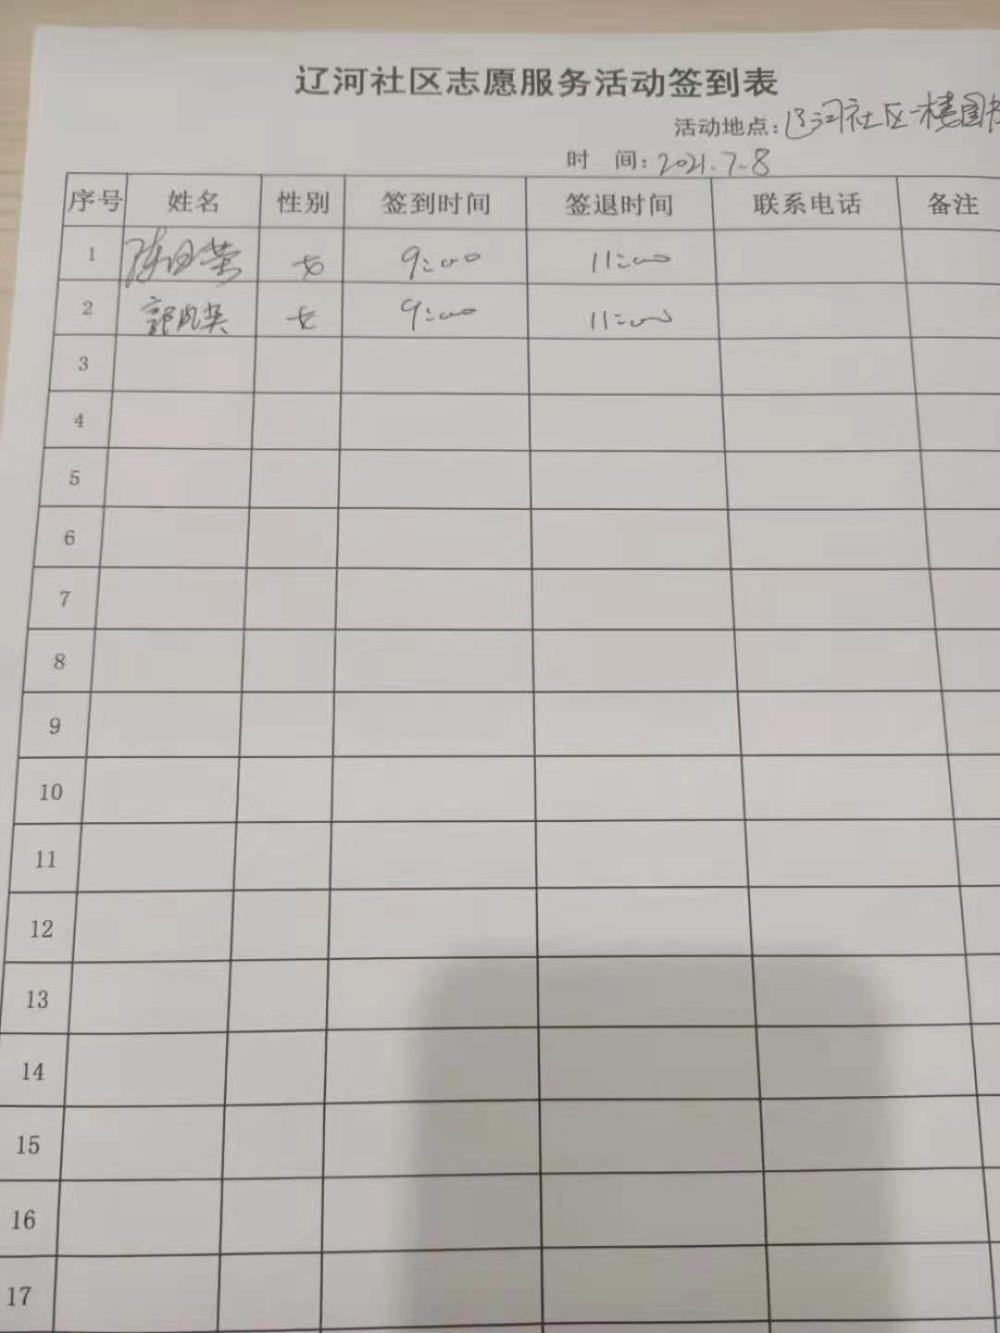 辽河社区志愿服务活动签到表
活动地点:辽河社区一楼图书
时 间:2021.7.8
序号 姓名 性别 签到时间 签退时间 联系电话 备注
1 女 9:00 11:00
2 郭凤英 女 9:00 11:00
3
4
5
6
7
8
9
10
11
12
13
14
15
16
17